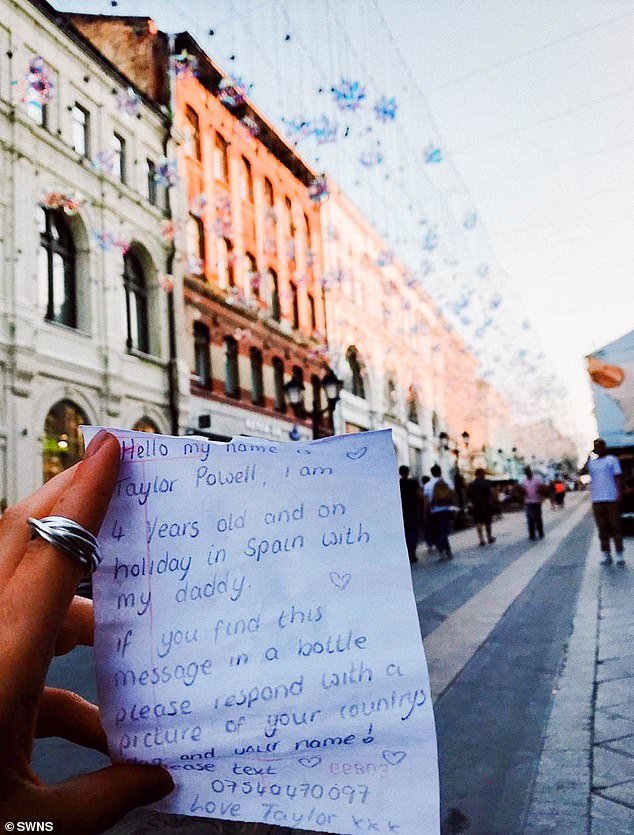 Hello my name is
Taylor Powell, I am
4 Years old and on
holiday in Spain with
my daddy.
if you find this
message in a bottle
please respond with a
picture of your countrys
flag and your name!
Please text
07540470097
Love Taylor xxx
© SWNS